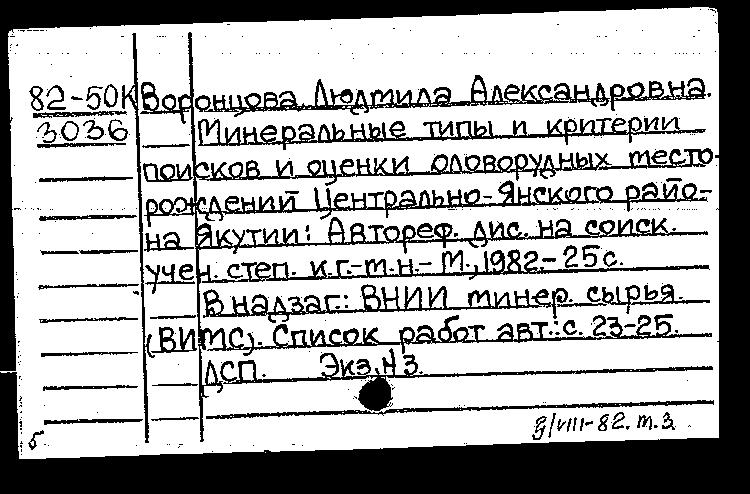 82-50К Воронцова Людмила Александровна.
3036 Минеральные типы и критерии
поисков и оценки оловорудных место-
рождений Центрально-Янского райо-
на Якутии: Автореф. дис. на соиск.
учен. степ. к.г.-м.н.- М., 1982.- 25 с.
В надзаг.: ВНИИ минер. сырья
(ВИМС). Список работ авт.: с. 23-25.
ДСП. Экз. N 3.
/VIII-82. т.з.
б